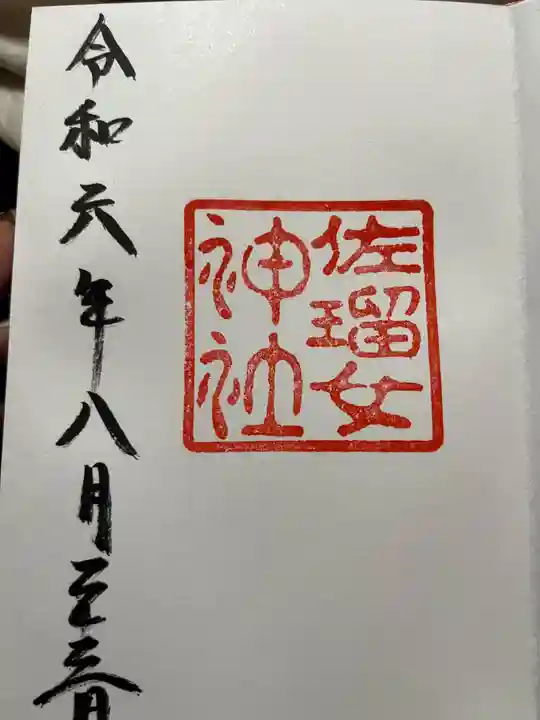 佐瑠女
神社
令和六年八月二十三日